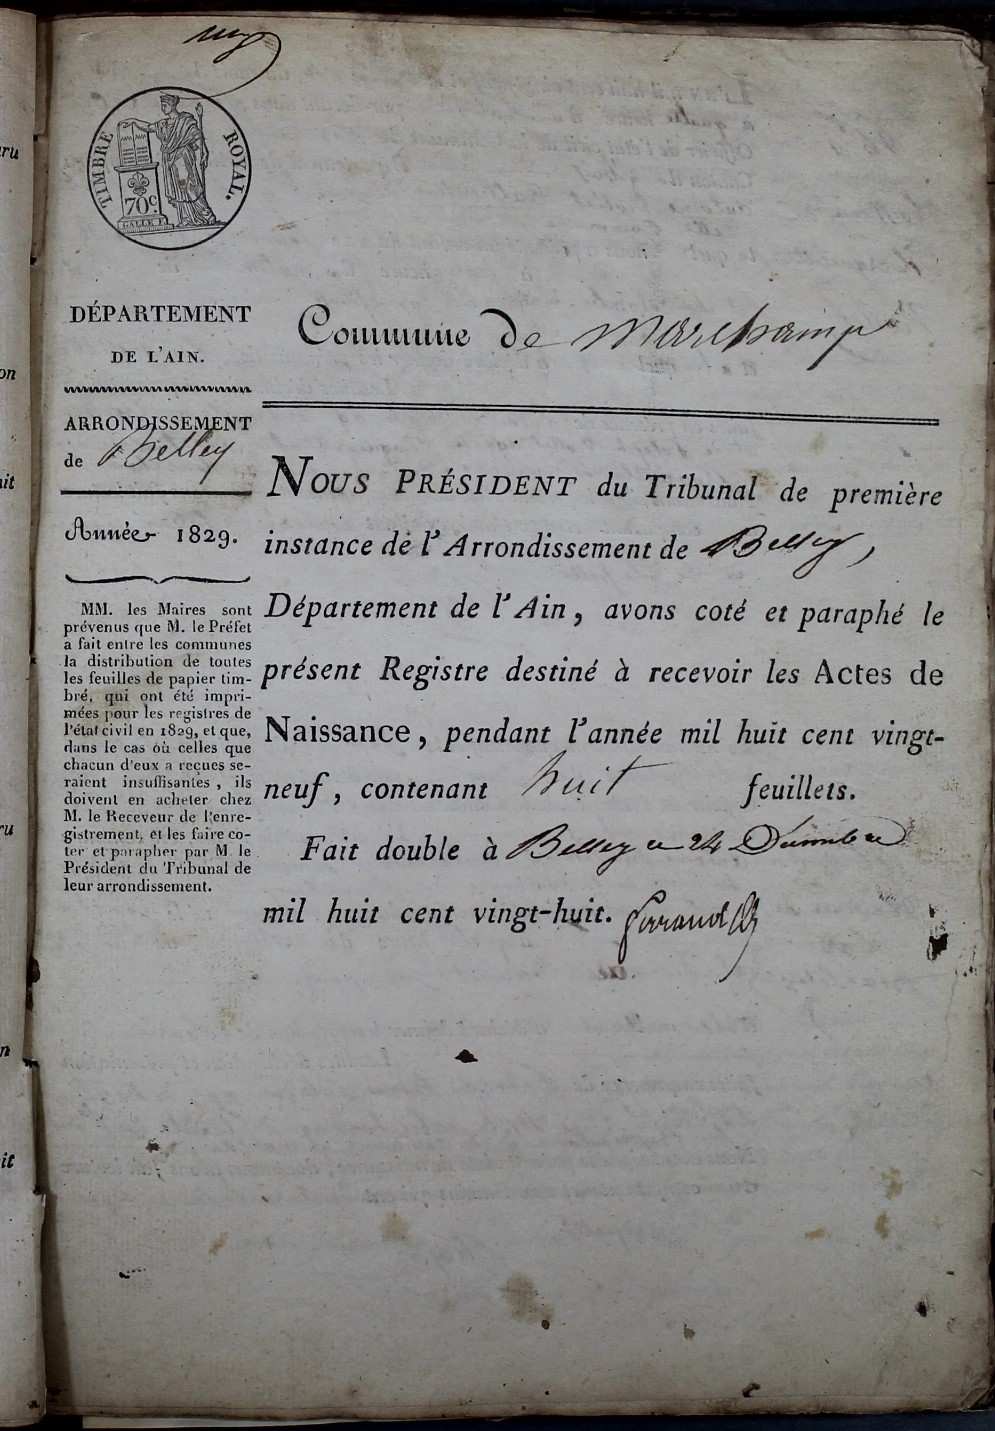 TIMBRE ROYAL.
70c
GALLE F.
DÉPARTEMENT
DE L'AIN.
ARRONDISSEMENT
de Belley
Année 1829.
MM. les Maires sont
prévenus que M. le Préfet
a fait entre les communes
la distribution de toutes
les feuilles de papier tim-
bré, qui ont été impri-
mées pour les registres de
l'état civil en 1829, et que,
dans le cas où celles que
chacun d'eux a reçues se-
raient insuffisantes, ils
doivent en acheter chez
M. le Receveur de l'enre-
gistrement, et les faire co-
ter et parapher par M. le
Président du Tribunal de
leur arrondissement.
Commune de Marchamp
NOUS PRÉSIDENT du Tribunal de première
instance de l'Arrondissement de Belley,
Département de l'Ain, avons coté et paraphé le
présent Registre destiné à recevoir les Actes de
Naissance, pendant l'année mil huit cent vingt-
neuf, contenant huit feuillets.
Fait double à Belley ce 24 Décembre
mil huit cent vingt-huit.